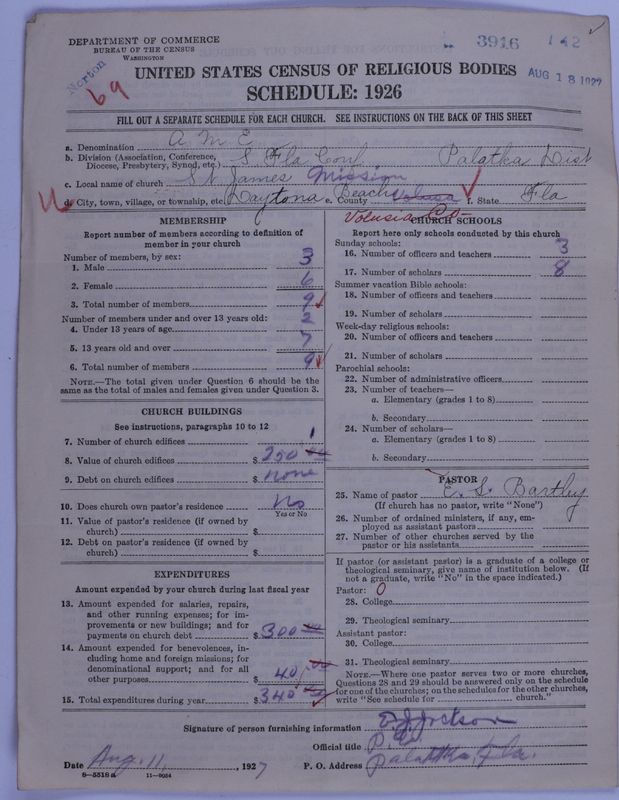 DEPARTMENT OF COMMERCE
BUREAU OF THE CENSUS
WASHINGTON
3916 142
AUG 18 1927
Norton
69
UNITED STATES CENSUS OF RELIGIOUS BODIES
SCHEDULE: 1926
FILL OUT A SEPARATE SCHEDULE FOR EACH CHURCH. SEE INSTRUCTIONS ON THE BACK OF THIS SHEET
a. Denomination A M E
b. Division (Association, Conference, Diocese, Presbytery, Synod, etc.) S Fla Conf. Palatka Dist
c. Local name of church St James Mission
d. City, town, village, or township, etc. Daytona Beach e. County Volusia f. State Fla
Volusia Co-
MEMBERSHIP
Report number of members according to definition of
member in your church
Number of members, by sex:
1. Male 3
2. Female 6
3. Total number of members 9
Number of members under and over 13 years old:
4. Under 13 years of age 2
5. 13 years old and over 7
6. Total number of members 9
NOTE.—The total given under Question 6 should be
same as the total of males and females given under Question 3.
CHURCH BUILDINGS
See instructions, paragraphs 10 to 12
7. Number of church edifices 1
8. Value of church edifices $ 250 00
9. Debt on church edifices $ none
10. Does church own pastor's residence No
Yes or No
11. Value of pastor's residence (if owned by
church) $
12. Debt on pastor's residence (if owned by
church) $
EXPENDITURES
Amount expended by your church during last fiscal year
13. Amount expended for salaries, repairs,
and other running expenses; for im-
provements or new buildings; and for
payments on church debt $ 300 00
14. Amount expended for benevolences, in-
cluding home and foreign missions; for
denominational support; and for all
other purposes $ 40 00
15. Total expenditures during year $ 340 00
CHURCH SCHOOLS
Report here only schools conducted by this church
Sunday schools:
16. Number of officers and teachers 3
17. Number of scholars 8
Summer vacation Bible schools:
18. Number of officers and teachers
19. Number of scholars
Week-day religious schools:
20. Number of officers and teachers
21. Number of scholars
Parochial schools:
22. Number of administrative officers
23. Number of teachers—
a. Elementary (grades 1 to 8)
b. Secondary
24. Number of scholars—
a. Elementary (grades 1 to 8)
b. Secondary
PASTOR
25. Name of pastor E. S. Bartley
(If church has no pastor, write "None")
26. Number of ordained ministers, if any, em-
ployed as assistant pastors
27. Number of other churches served by the
pastor or his assistants
If pastor (or assistant pastor) is a graduate of a college or
theological seminary, give name of institution below. (If
not a graduate, write "No" in the space indicated.)
Pastor: 0
28. College
29. Theological seminary
Assistant pastor:
30. College
31. Theological seminary
NOTE.—Where one pastor serves two or more churches,
Questions 28 and 29 should be answered only on the schedule
for one of the churches; on the schedules for the other churches,
write "See schedule for church."
Signature of person furnishing information E. J. Jackson
Official title P. E.
Date Aug. 11, 1927 P. O. Address Palatka, Fla.
8—5519a 11—9034